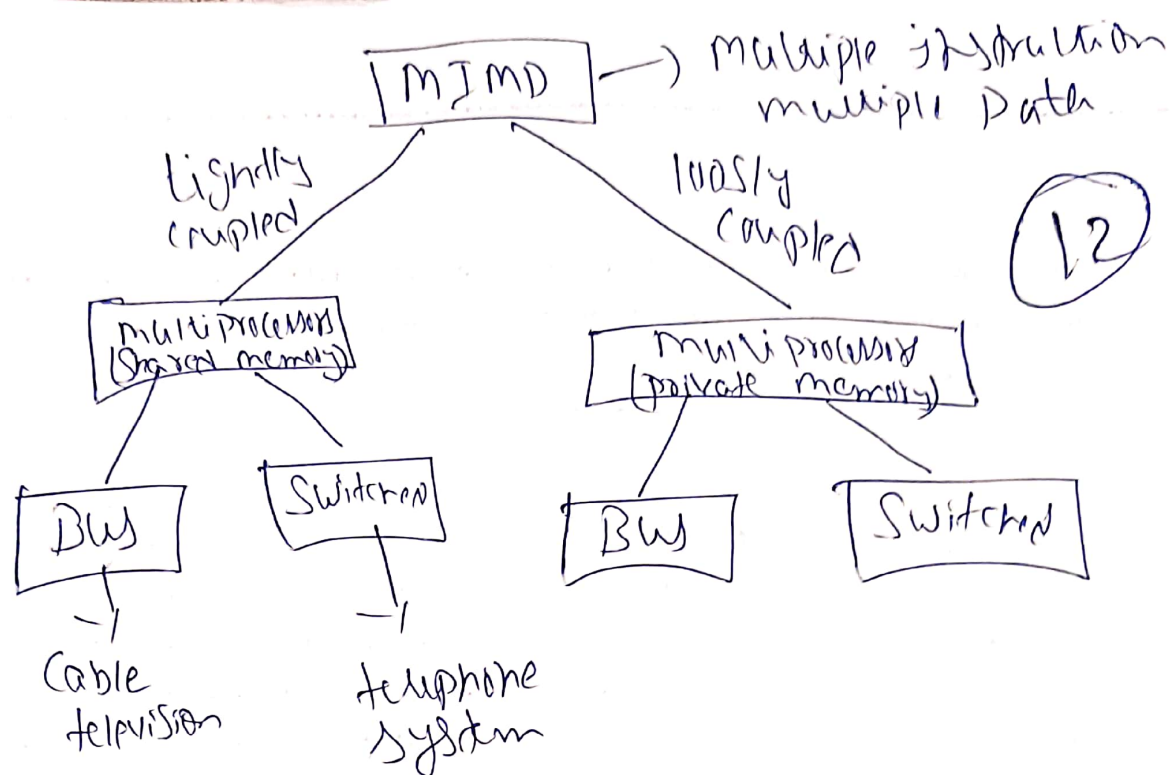 MIMD
multiple instruction
multiple Data
tightly
coupled
loosly
coupled
12
multiprocessors
(Shared memory)
multiprocessors
(private memory)
Bus
Switched
Bus
Switched
Cable
television
telephone
system